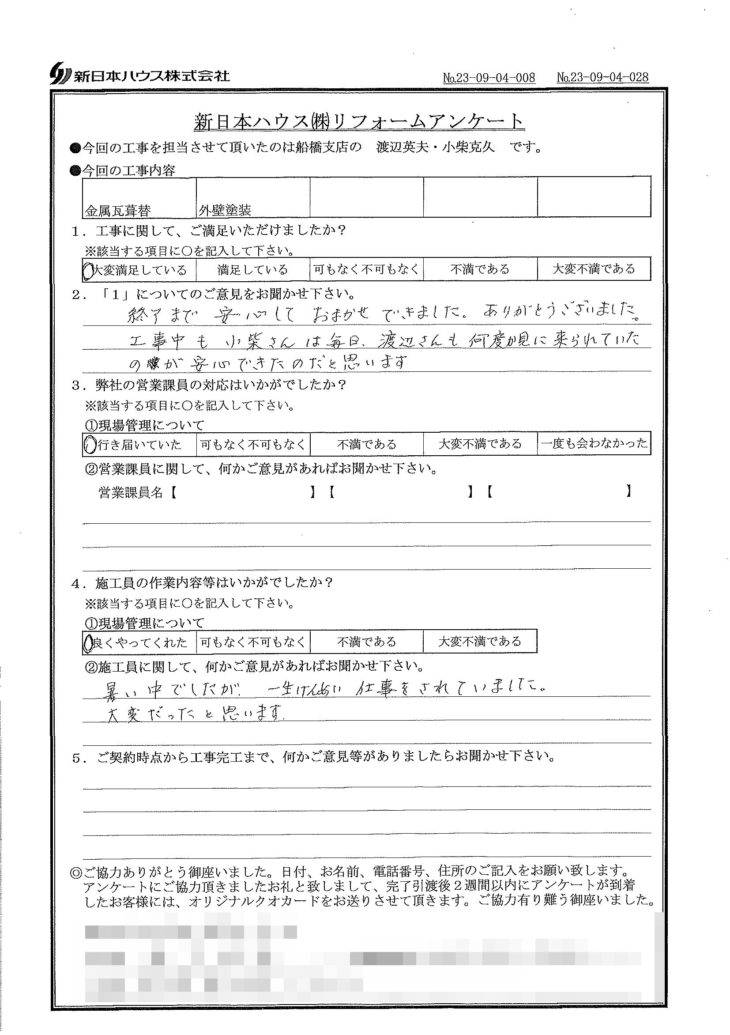 新日本ハウス株式会社
No.23-09-04-008 No.23-09-04-028
新日本ハウス㈱リフォームアンケート
●今回の工事を担当させて頂いたのは船橋支店の 渡辺英夫・小柴克久 です。
●今回の工事内容
金属瓦葺替 外壁塗装
1．工事に関して、ご満足いただけましたか？
※該当する項目に○を記入して下さい。
大変満足している 満足している 可もなく不可もなく 不満である 大変不満である
2．「1」についてのご意見をお聞かせ下さい。
終了まで 安心して おまかせ できました。ありがとうございました。
工事中も 小柴さんは毎日、渡辺さんも何度か見に来られていた
のが安心できたのだと思います
3．弊社の営業課員の対応はいかがでしたか？
※該当する項目に○を記入して下さい。
①現場管理について
行き届いていた 可もなく不可もなく 不満である 大変不満である 一度も会わなかった
②営業課員に関して、何かご意見があればお聞かせ下さい。
営業課員名【 】【 】【 】
4．施工員の作業内容等はいかがでしたか？
※該当する項目に○を記入して下さい。
①現場管理について
良くやってくれた 可もなく不可もなく 不満である 大変不満である
②施工員に関して、何かご意見があればお聞かせ下さい。
暑い中でしたが、一生けんめい 仕事をされていました。
大変だったと思います。
5．ご契約時点から工事完工まで、何かご意見等がありましたらお聞かせ下さい。
◎ご協力ありがとう御座いました。日付、お名前、電話番号、住所のご記入をお願い致します。
アンケートにご協力頂きましたお礼と致しまして、完了引渡後２週間以内にアンケートが到着
したお客様には、オリジナルクオカードをお送りさせて頂きます。ご協力有り難う御座いました。